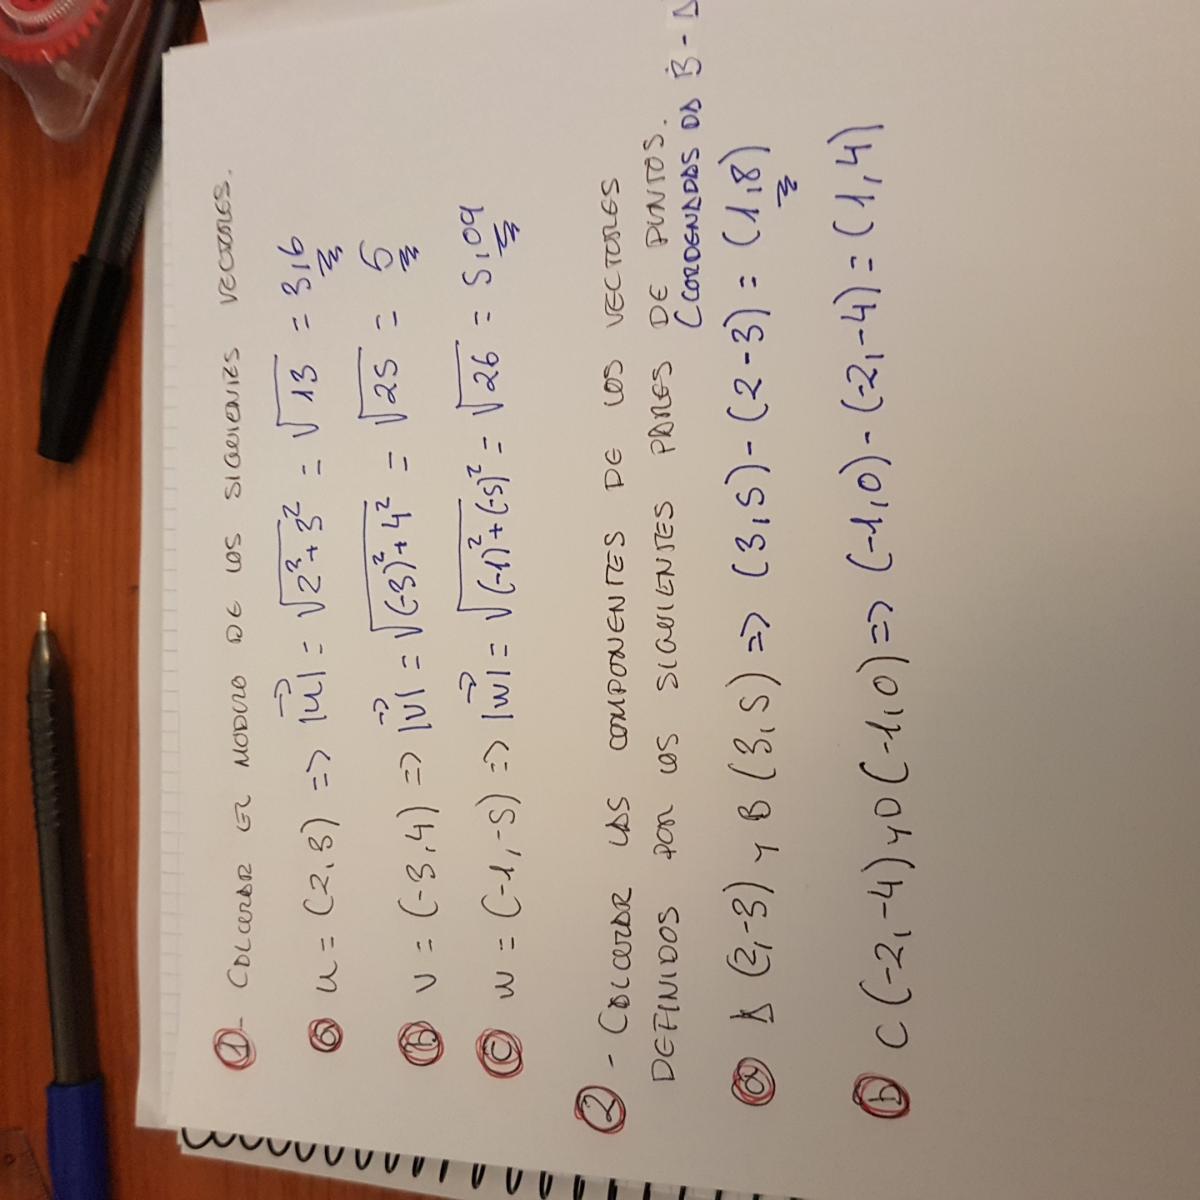 1- CALCULAR EL MODULO DE LOS SIGUIENTES VECTORES.
a u = (2,3) => |u⃗| = √2³+3² = √13 = 3,6
b v = (-3,4) => |v⃗| = √(-3)²+4² = √25 = 5
c w = (-1,-5) => |w⃗| = √(-1)²+(-5)² = √26 = 5,09
2- CALCULAR LAS COMPONENTES DE LOS VECTORES
DEFINIDOS POR LOS SIGUIENTES PARES DE PUNTOS.
(CORDENADAS DA B-A
a A (2,-3) y B (3,5) => (3,5)-(2-3) = (1,8)
b C (-2,-4) y D (-1,0) => (-1,0)-(-2,-4) = (1,4)